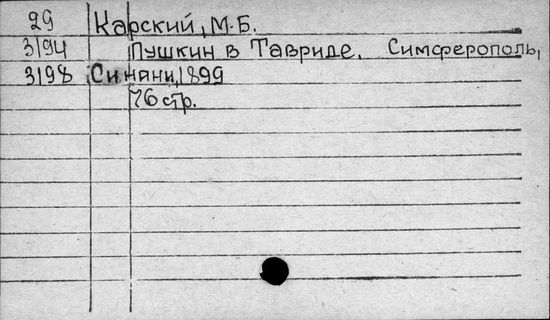 29 Карский, М.Б.
3194 Пушкин в Тавриде. Симферополь,
3198 Синани, 1899
76 стр.